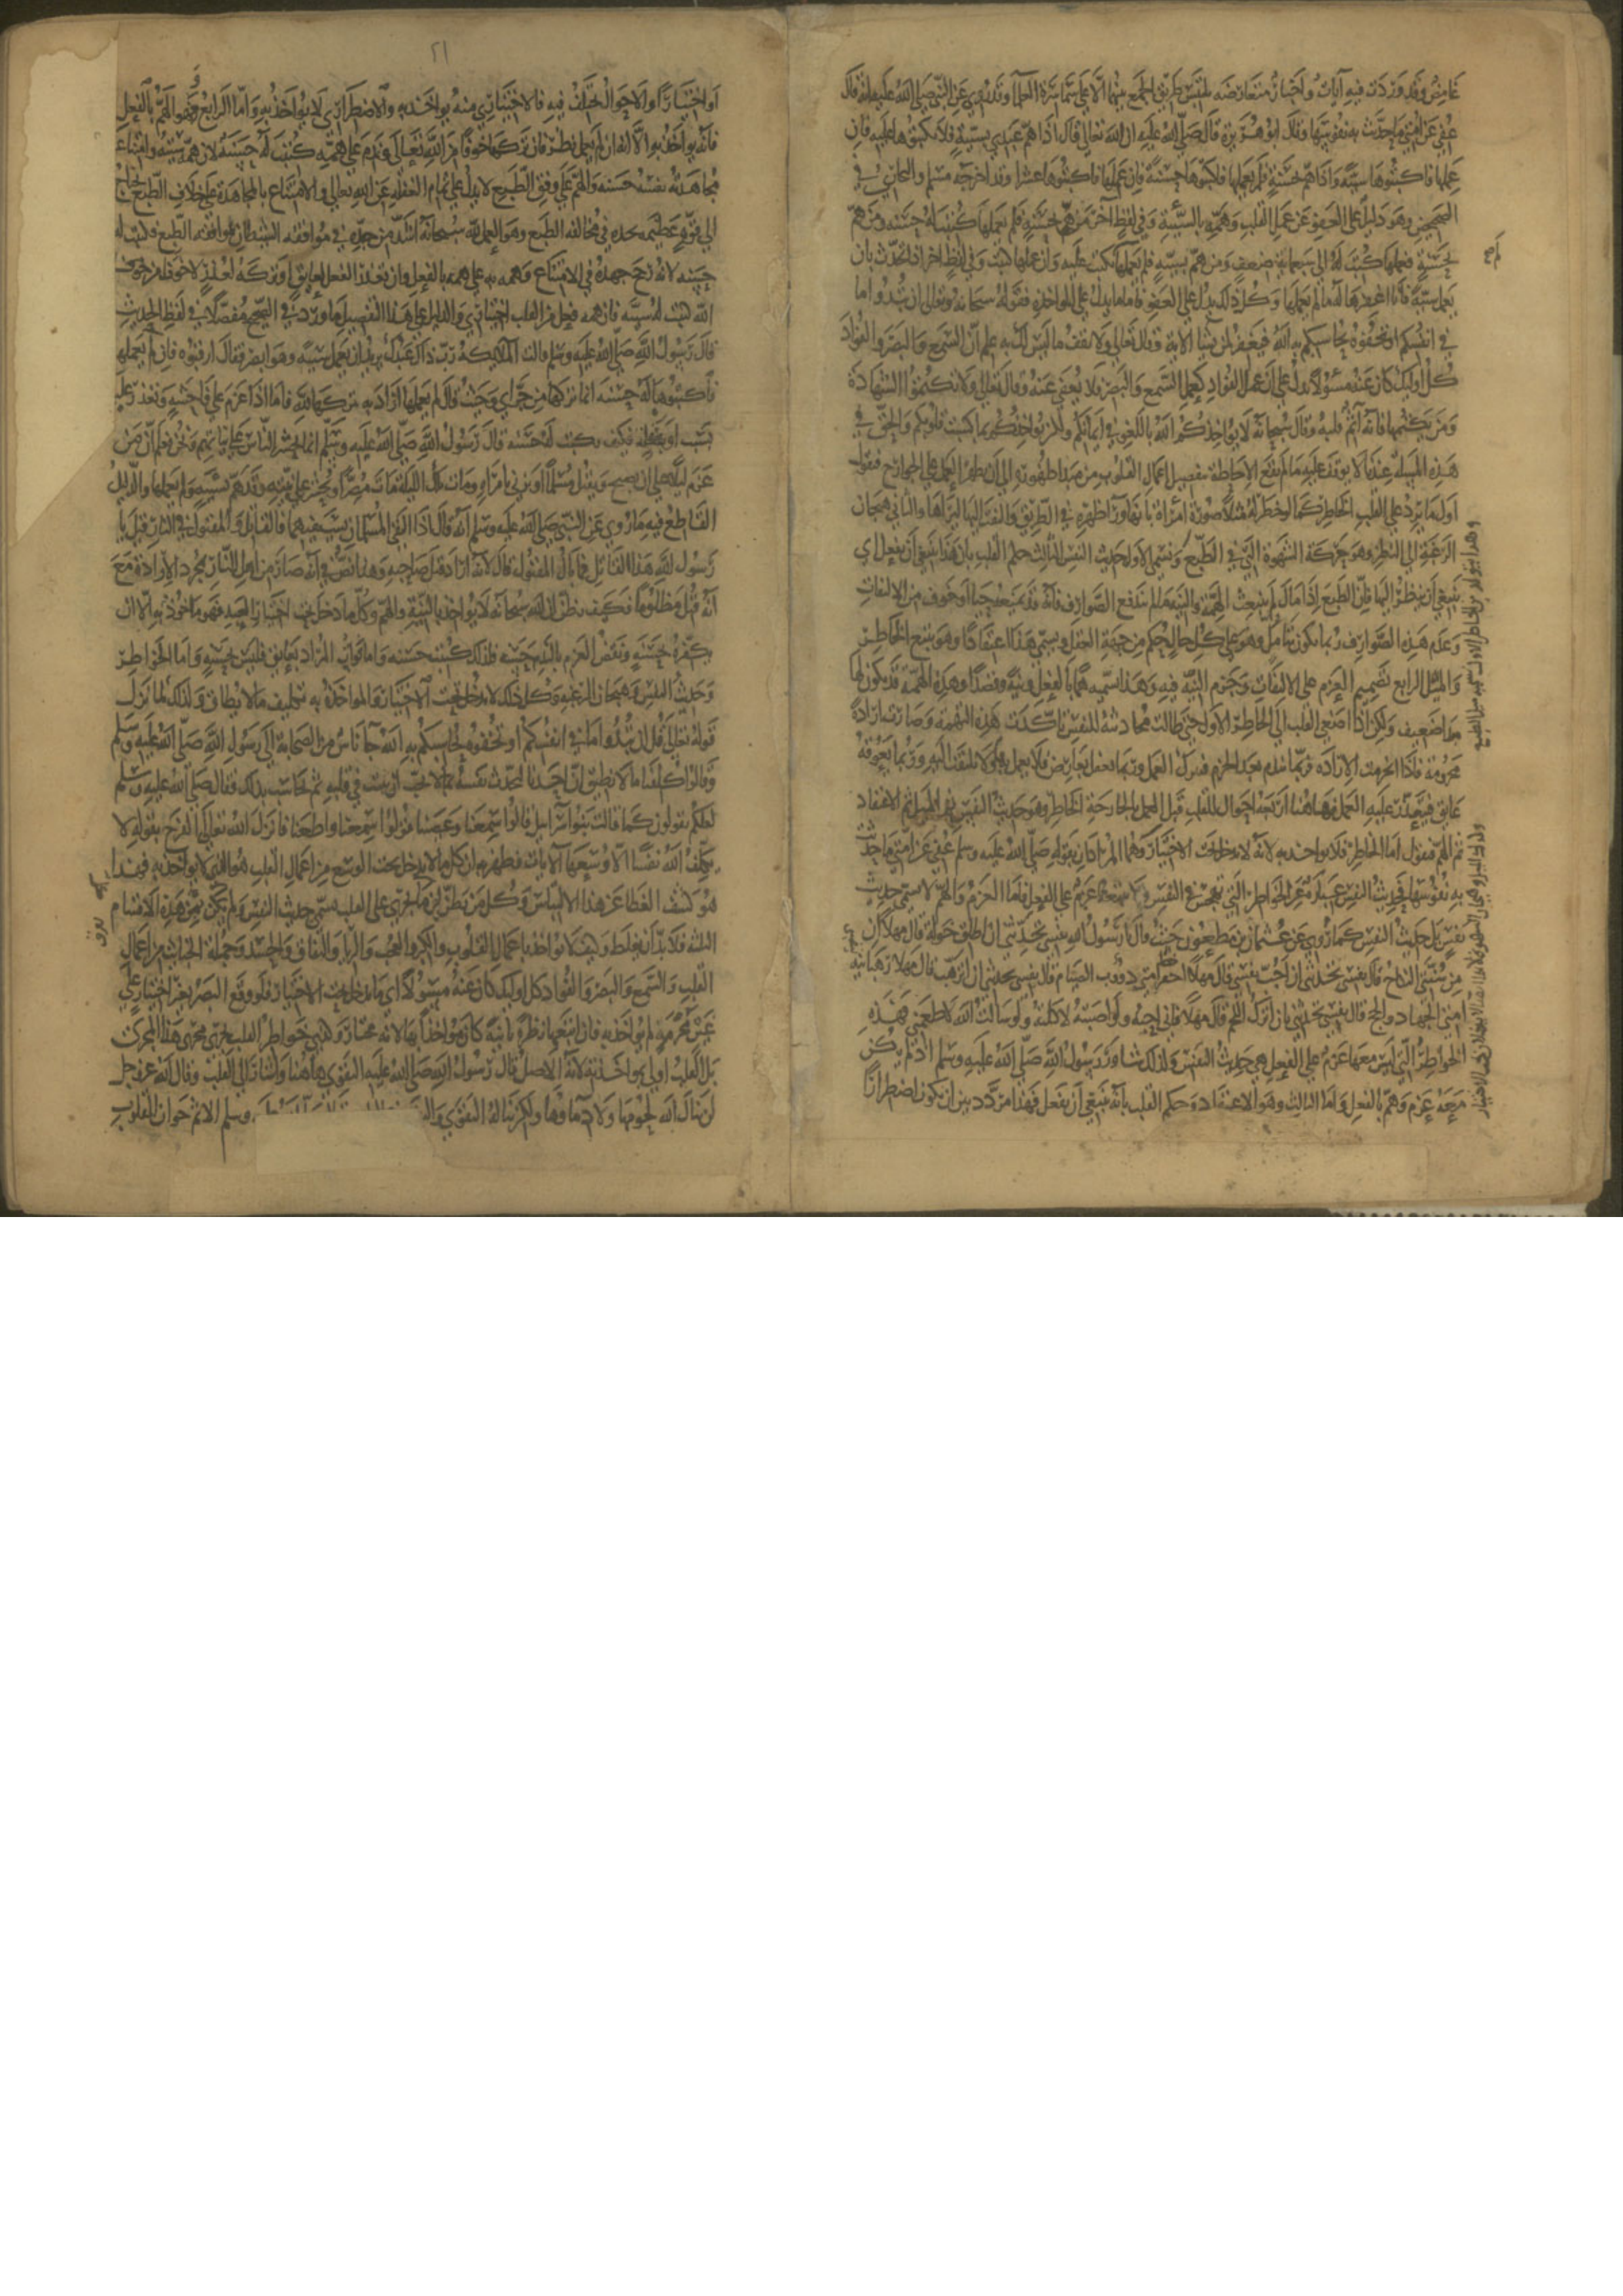 غامض وقد وردت فيه آيات وأخبار متعارضة يلتبس طريق الجمع بينها إلا على سماسرة العلماء وقد روي عن النبي صلى الله عليه أنه قال
عفي عن أمتي ما حدثت به نفوسها وقال أبو هريرة قال صلى الله عليه إن الله تعالى قال إذا هم عبدي بسيئة فلا تكتبوها عليه فإن
عملها فاكتبوها سيئة وإذا هم بحسنة فلم يعملها فاكتبوها حسنة فإن عملها فاكتبوها عشرا وقد أخرجه مسلم والبخاري في
الصحيحين وهو دليل على العفو عن عمل القلب وهمه بالسيئة وفي لفظ آخر من هم بحسنة فلم يعملها كتبت له حسنة ومن هم
بحسنة فعملها كتبت له إلى سبعمائة ضعف ومن هم بسيئة فلم يعملها لم تكتب عليه وإن عملها كتبت وفي لفظ آخر إذا تحدث بأن
يعمل سيئة فأنا أغفرها له ما لم يعملها وكل ذلك يدل على العفو فأما ما يدل على المؤاخذة فقوله سبحانه وتعالى إن تبدوا ما
في أنفسكم أو تخفوه يحاسبكم به الله فيغفر لمن يشاء الآية وقال تعالى ولا تقف ما ليس لك به علم إن السمع والبصر والفؤاد
كل أولئك كان عنه مسئولا يدل على أن عمل الفؤاد كعمل السمع والبصر فلا يعفى عنه وقال تعالى ولا تكتموا الشهادة
ومن يكتمها فإنه آثم قلبه وقال سبحانه لا يؤاخذكم الله باللغو في أيمانكم ولكن يؤاخذكم بما كسبت قلوبكم والحق في
هذه المسألة عندنا لا يوقف عليه ما لم تقع الإحاطة بتفصيل أعمال القلوب من مبدأ ظهورها إلى أن يظهر العمل على الجوارح فنقول
أول ما يرد على القلب الخاطر كما لو خطر له مثلا صورة امرأة بأنها وراء ظهره في الطريق لو التفت إليها لرآها والثاني هيجان
الرغبة إلى النظر وهو حركة الشهوة التي في الطبع ونسمي الأول حديث النفس الثالث حكم القلب بأن هذا ينبغي أن يفعل أي
ينبغي أن ينظر إليها فإن الطبع إذا مال لم تنبعث الهمة والنية ما لم تندفع الصوارف فإنه قد يمنعه حياء أو خوف من الالتفات
وعدم هذه الصوارف ربما يكون بتأمل وهو على كل حال حكم من جهة العقل ويسمى هذا اعتقادا وهو يتبع الخاطر
والميل الرابع تصميم العزم على الالتفات وجزم النية فيه وهذا نسميه هما بالفعل ونية وقصدا وهذه الهمة قد يكون لها
مبدأ ضعيف ولكن إذا أصغى القلب إلى الخاطر الأول حتى طالت محادثته للنفس تأكدت هذه الهمة وصارت إرادة
مجزومة فإذا انجزمت الإرادة فربما يندم بعد الجزم فيترك العمل وربما يغفل بعارض فلا يعمل به ولا يلتفت إليه وربما يعوقه
عايق فيتعذر عليه العمل فهاهنا أربعة أحوال للقلب قبل العمل بالجارحة الخاطر وهو حديث النفس ثم الميل ثم الاعتقاد
ثم الهم فنقول أما الخاطر فلا يؤاخذ به لأنه لا يدخل تحت الاختيار وهما المرادان بقوله صلى الله عليه وسلم عفي عن أمتي ما حدثت
به نفوسها فحديث النفس عبارة عن الخواطر التي تهجس في النفس ولا يتبعها عزم على الفعل فأما العزم والهم لا يسمى حديث
نفس بل حديث النفس كما روي عن عثمان بن مظعون حيث قال يا رسول الله نفسي تحدثني أن أطلق خولة قال مهلا إن
من سنتي النكاح قال نفسي تحدثني أن أجب نفسي قال مهلا خصاء أمتي دؤوب الصيام قال نفسي تحدثني أن أترهب قال مهلا رهبانية
أمتي الجهاد والحج قال نفسي تحدثني بأن أترك اللحم قال مهلا فإني أحبه ولو أصبته لأكلته ولو سألت الله لأطعمني فهذه
الخواطر التي ليس معها عزم على الفعل هي حديث النفس ولذلك شاور رسول الله صلى الله عليه وسلم إذ لم يكن
معه عزم وهم بالفعل وأما الثالث وهو الاعتقاد وحكم القلب بأنه ينبغي أن يفعل فهذا مردد بين أن يكون اضطرارا
٢١
أو اختيارا والأحوال تختلف فيه فالاختياري منه يؤاخذ به والاضطراري لا يؤاخذ به وأما الرابع وهو الهم بالفعل
فإنه يؤاخذ به إلا أنه إن لم يعمل نظر فإن تركها خوفا من الله تعالى وندم على همه كتبت له حسنة لأن همه سيئة وامتناعه
مجاهدته نفسه حسنة والهم على وفق الطبع لا يدل على تمام الغفلة عن الله تعالى والامتناع بالمجاهدة على خلاف الطبع يحتاج
إلى قوة عظيمة فجده في مخالفة الطبع وهو العمل لله سبحانه أشد من جده في موافقة الشيطان بموافقة الطبع فكتبت له
حسنة لأنه رجح جهده في الامتناع وهمه به على همه بالفعل وإن تعذر الفعل لعايق أو تركه لعذر لا خوفا من
الله كتبت له سيئة فإن همه فعل من القلب اختياري والدليل على هذا التفصيل ما ورد في الصحيح مفصلا في لفظ الحديث
قال رسول الله صلى الله عليه وسلم قالت الملائكة رب ذاك عبدك يريد أن يعمل سيئة وهو أبصر فقال ارقبوه فإن لم يعملها
فاكتبوها له حسنة إنما تركها من جراي وحيث قال لم يعملها أراد به تركها لله فأما إذا عزم على فاحشة وتعذر عليه
بسبب أو بغفلة فكيف تكتب له حسنة قال رسول الله صلى الله عليه وسلم إنما يحشر الناس على نياتهم ونحن نعلم أن من
عزم ليلا على أن يصبح ويقتل مسلما أو يزني بامرأة ومات تلك الليلة مات مصرا ويحشر على نيته وقد هم بسيئة ولم يعملها والدليل
القاطع فيه ما روي عن النبي صلى الله عليه وسلم أنه قال إذا التقى المسلمان بسيفيهما فالقاتل والمقتول في النار قيل يا
رسول الله هذا القاتل فما بال المقتول قال لأنه أراد قتل صاحبه وهذا نص في أنه صار من أهل النار بمجرد الإرادة مع
أنه قتل مظلوما فكيف يظن أن الله سبحانه لا يؤاخذ بالنية والهم وكل ما دخل تحت اختيار العبد فهو مأخوذ به إلا أن
يكفره بحسنة ونقض العزم بالندم حسنة فلذلك كتبت حسنة وأما فوات المراد بعايق فليس بحسنة وأما الخواطر
وحديث النفس وهيجان الرغبة وكل ذلك لا يدخل تحت الاختيار والمؤاخذة به تكليف ما لا يطاق ولذلك لما نزل
قوله تعالى وإن تبدوا ما في أنفسكم أو تخفوه يحاسبكم به الله جاء ناس من الصحابة إلى رسول الله صلى الله عليه وسلم
وقالوا كلفنا ما لا نطيق إن أحدنا ليحدث نفسه بما لا يحب أن يثبت في قلبه ثم يحاسب بذلك فقال صلى الله عليه وسلم
لعلكم تقولون كما قالت بنو إسرائيل قالوا سمعنا وعصينا قولوا سمعنا وأطعنا فأنزل الله تعالى الفرج بقوله لا
يكلف الله نفسا إلا وسعها الآيات فظهر به أن كل ما لا يدخل تحت الوسع من أعمال القلب هو الذي لا يؤاخذ به فهذا
هو كشف الغطاء عن هذا الالتباس وكل من يظن أن ما يجري على القلب يسمى حديث النفس ولم يميز بين هذه الأقسام
الثلثة فلا بد أن يغلط وكيف لا يؤاخذ بأعمال القلوب والكبر والعجب والريا والنفاق والحسد وجملة الخبائث من أعمال
القلب والسمع والبصر والفؤاد كل أولئك كان عنه مسئولا أي ما يدخل تحت الاختيار فلو وقع البصر بغير اختيار على
غير محرم لم يؤاخذ به فإن أتبعها نظرة ثانية كان مؤاخذا بها لأنه مختار وهي خواطر القلب تجري مجرى هذا المجرى
بل القلب أولى بمؤاخذته لأنه الأصل قال رسول الله صلى الله عليه التقوى هاهنا وأشار إلى القلب وقال الله عز وجل
لن ينال الله لحومها ولا دماؤها ولكن يناله التقوى وسلم الإثم حواز القلوب